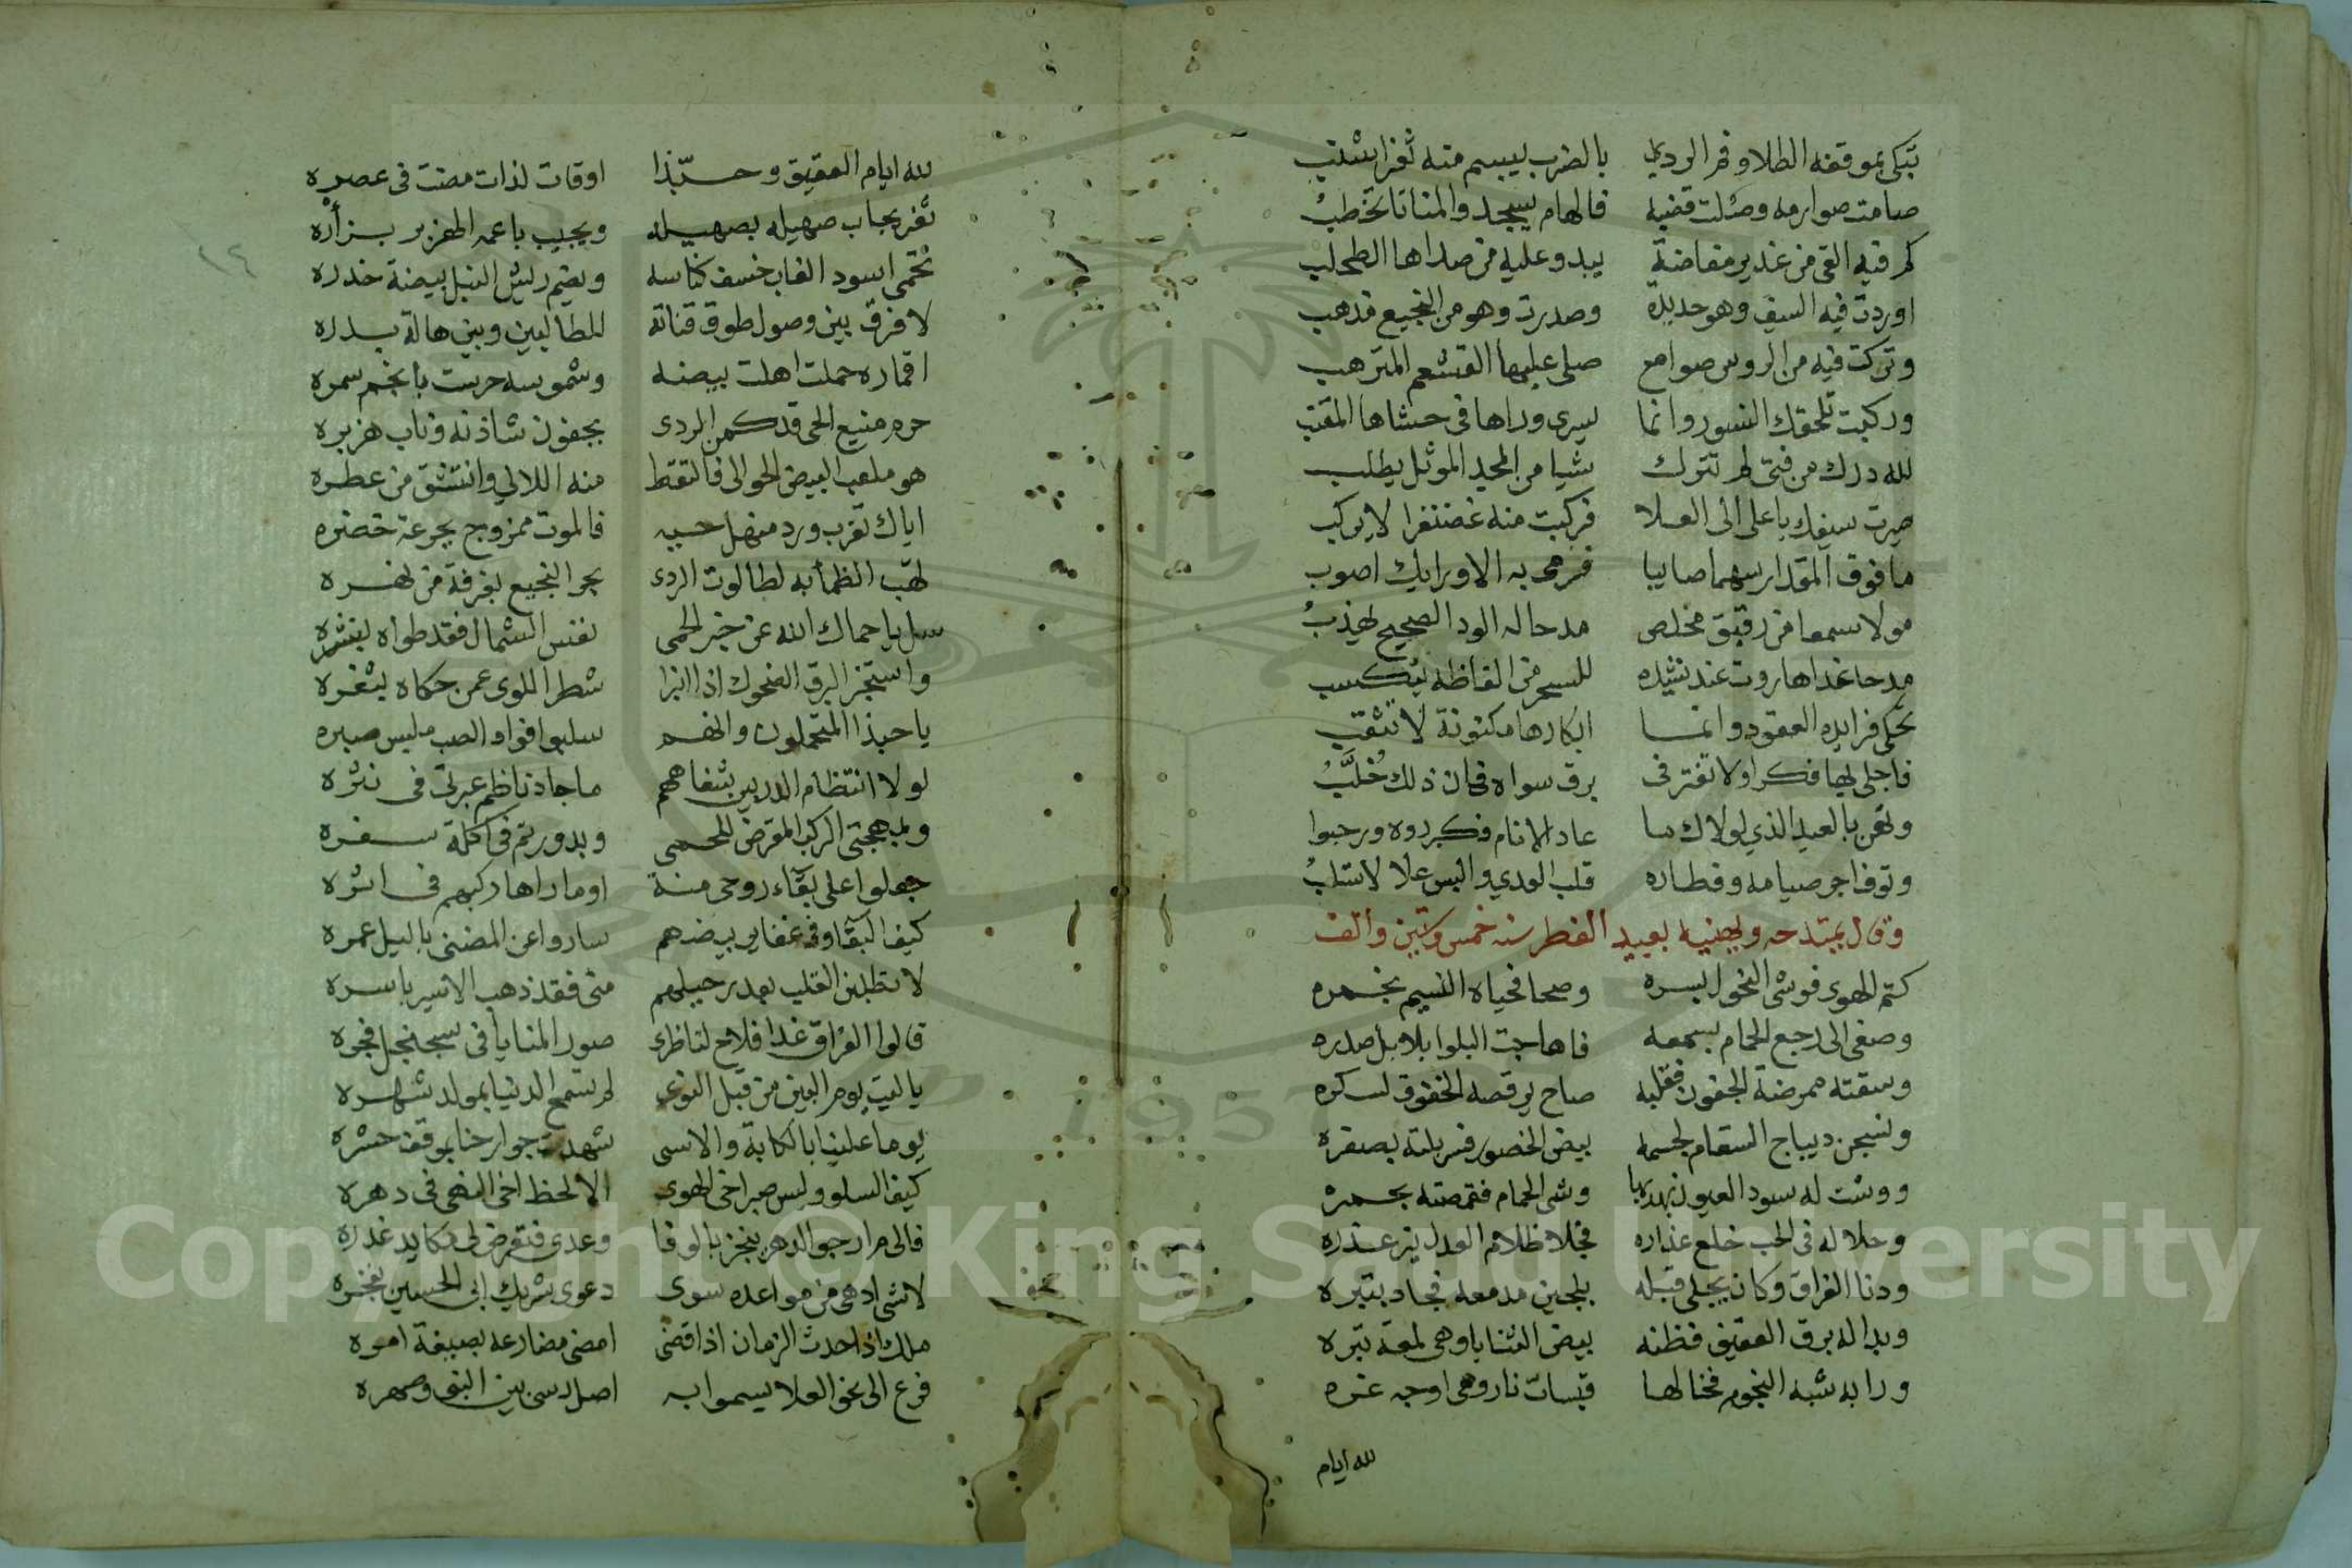 تبكي بموقفه الطلا وفم الردي بالضرب يبسم منه ثغر اشنب
صامت صوارمه وصلت قضبه فالهام يسجد والمنايا تخطب
كم فيه القى من غدير مفاضة يبدو عليه من صداها الطحلب
اوردت فيه السيف وهو حديدة وصدرت وهو من النجيع مذهب
وتركت فيه من الروس صوامع صلى عليها القشعم المترهب
وركبت تلحقك النسور وانما يسرى وراها فى حشاها المقنب
لله درك من فتى لم تترك شيا من المجد الموثل يطلب
صيرت سيفك يا على الى العلا فركبت منه غضنفرا لا يركب
ما فوق المقدار سهما صايبا فرمى به الا ورايك اصوب
مولا سمعا من رقيق مخلص مدحا له الود الصحيح يهذب
مدحا غدا هاروت عند نشيده للسحر من الفاظه يتكسب
تحكى فرايده العقود وانما ابكارها مكنونة لا تثقب
فاجلى بها فكرا ولا تغتر فى برق سواه فان ذلك خلب
وتهن بالعيد الذي لولاك ما عاد الانام فكرروه ورحبوا
وتوف اجر صيامه وفطاره قلب العدي والبس علا لا تسلب
وقال يمتدحه ويهنيه بعيد الفطر سنه خمس وستين والف
كتم الهوى فوشى النحول بسره وصحا فحياه النسيم بخمره
وصغى الى رجع الحمام بسمعه فاهاجت البلوا بلابل صدره
وسقته ممرضة الجفون فقلبه صاح يرقصه الخفوق لسكره
ونسجن ديباج السقام لجسمه بيض الخصور فسربلته بصفره
ووشت له سود العيون بهدبها وشى الحمام فقمصته بحمره
وحلا له فى الحب خلع عذاره فجلا ظلام العدل نير عذره
ودنا الفراق وكان يبخل قبله بلجين مدمعه فجاد بتبره
وبدا له برق العقيق فظنه بيض الثنايا وهى لمعة تبره
ورا به شبه النجوم فخالها قبسات نار وهى اوجه غره
لله ايام
لله ايام العقيق وحبذا اوقات لذات مضت فى عصره
ثغر يجاب صهيله بصهيله ويجيب باغمه الهزبر بزأره
تحمى اسود الغاب خسف كناسه ويضم ريش النبل بيضة خدره
لا فرق بين وصول طوق قناته للطالبين وبين هالة بدره
اقماره حملت اهلت بيضه وشموسه حرست بانجم سمره
حرم منيع الحى قد كمن الردى بجفون شاذنه وناب هزبره
هو ملعب البيض الحوالى فالتقط منه اللالي وانتشق من عطره
اياك تقرب ورد منهل حيه فالموت ممزوج بجرعة خضره
لهب الظما به لطالوت الردى بحر النجيع بغرفة من نهره
سل يا حماك الله عن خبر الحمى نفس الشمال فقد طواه بنشره
واستخبر البرق الضحوك اذا انبرا شطر اللوى عمن حكاه بثغره
يا حبذا المتحملون وانهم سلبوا فواد الصب ملبس صبره
لولا انتظام الدر بين شفاههم ما جاد ناظم عبرتى فى نثره
وبمهجتى الركب المقرض للحمى وبدور تم فى اكلة سفره
جعلوا على بقآء روحى منة او ما راها ركبهم فى اثره
كيف البقآ وفى غفاير بيضهم ساروا عن المضنى باليل عمره
لا تطلبن القلب بعد رحيلهم منى فقد ذهب الاسير باسره
قالوا الفراق غدا فلاح لناظرى صور المنايا فى سجنجل فجره
يا ليت يوم البين من قبل النوى لم تسمح الدنيا بمولد شهره
يوما علينا بالكابة والاسى شهدت جوارحنا بموقف حشره
كيف السلو وليس صبر اخى الهوى الا لحظ اخى النهى فى دهره
فالى م ارجو الدهر ينجز بالوفا وعدى فتقرض لى مكايد غدره
لا شى ادهى من مواعده سوى دعوى شريك ابى الحسين بفخره
ملك اذا حدث الزمان اذا قضى امضى مضارعه بصيغة امره
فرع الى نحو العلا يسموا به اصل رسى بين النبى وصهره